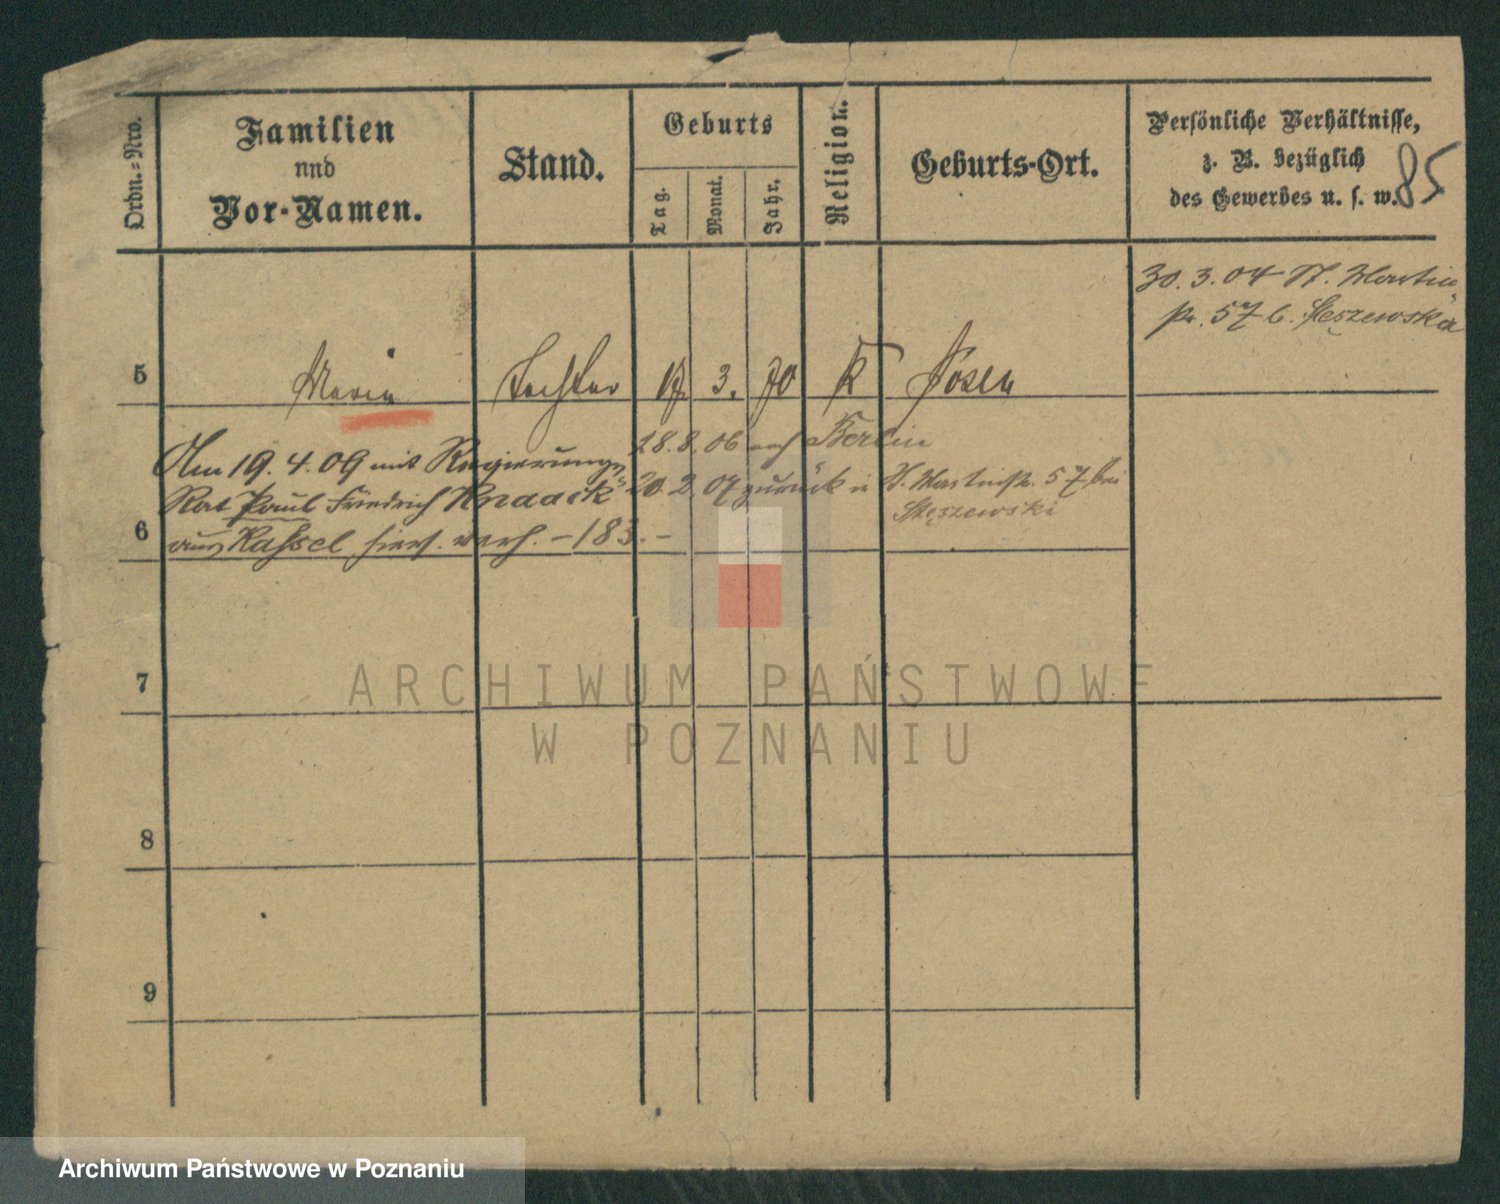 Ordn.-Nro.
Familien
und
Vor-Namen.
Stand.
Geburts
Tag.
Monat.
Jahr.
Religion.
Geburts-Ort.
Persönliche Verhältnisse,
z. B. bezüglich
des Gewerbes u. s. w.
85
30. 3. 04 St. Martin
57 b. Steszewska
5
Maria
Tochter
17
3.
70
K
Posen
Am 19. 4. 09 mit Regierungs
Rat Paul Friedrich Knaack
aus Kassel hiers. verh. - 183. -
28. 8. 06 nach Berlin
20. 2. 07 zurück in St. Martinstr. 57 bei
Stęszewski
6
7
8
9
ARCHIWUM PAŃSTWOWE
W POZNANIU
Archiwum Państwowe w Poznaniu